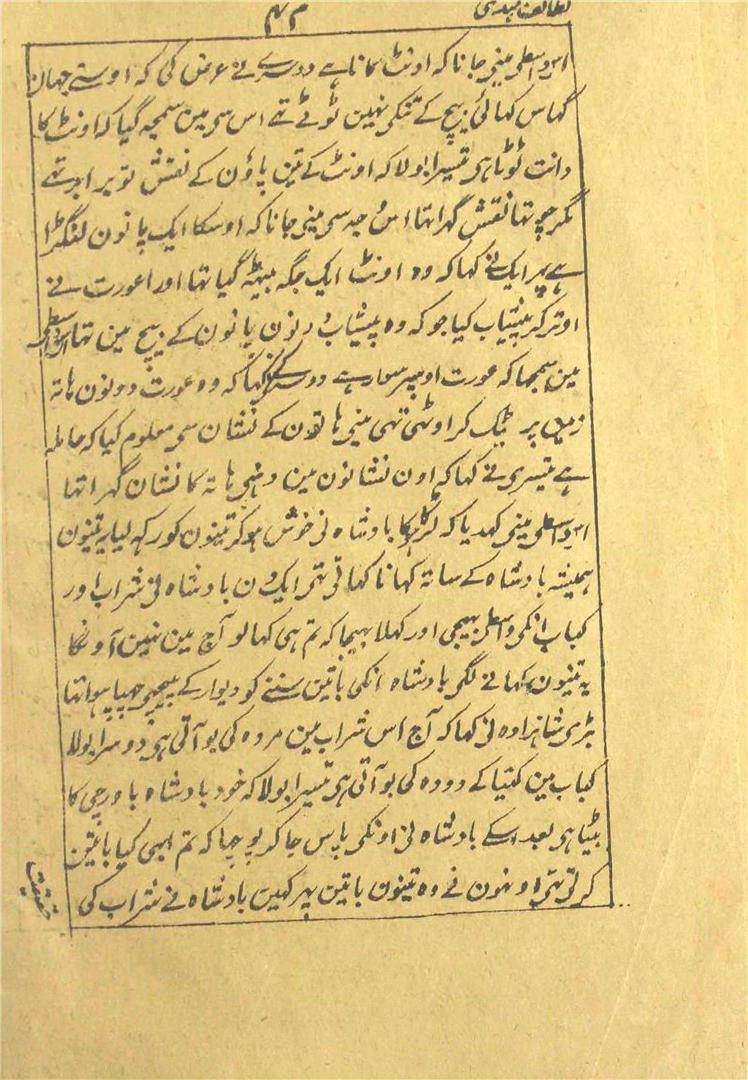 لطائف ہندی
۴۴
اس واسطی مینی جانا کہ اونٹ کانا ہے دوسرے نے عرض کی کہ اوسنے جہان
گہاس کہائی بیچ کے تنکی نہین ٹوٹے تھے اس سی مین سمجہ گیا کہ اونٹ کا
دانت ٹوٹا ہی تیسرا بولا کہ اونٹ کے تین پاؤن کے نقش تو برابر تھے
مگر چوتہا نقش گہرا تہا اس وجہ سی مینی جانا کہ اوسکا ایک پانون لنگڑا
ہے پہر ایک نے کہا کہ وہ اونٹ ایک جگہ بیٹہ گیا تہا اور اعورت نے
اوتر کر پیشاب کیا جو کہ وہ پیشاب دونون پانون کے بیچ مین تہا اس واسطی
مین سمجہا کہ عورت اوسپر سوار ہے دوسرے نے کہا کہ وہ عورت دونون ہاتہ
زمین پر ٹیک کر اوٹہی تہی مینی ہاتون کے نشان سی معلوم کیا کہ حاملہ
ہے تیسری نے کہا کہ اون نشانون مین دہنی ہاتہ کا نشان گہرا تہا
اس واسطی مینی کہدیا کہ لڑکا ہوگا بادشاہ نی خوش ہو کر تینون کو رکہہ لیا یہ تینون
ہمیشہ بادشاہ کے ساتہ کہانا کہاتی تہی ایک دن بادشاہ نی شراب اور
کباب انکی واسطی بہیجی اور کہلا بہیجا کہ تم ہی کہا لو آج مین نہین آونگا
یہ تینون کہانے لگی بادشاہ انکی باتین سننے کو دیوار کے پیچہی چہپا ہوا تہا
بڑی شاہزادہ نی کہا کہ آج اس شراب مین مردہ کی بو آتی ہی دوسرا بولا
کباب مین کتیا کے دودہ کی بو آتی ہی تیسرا بولا کہ خود بادشاہ باورچی کا
بیٹا ہی بعد اسکے بادشاہ نی اونکی پاس جا کر پوچہا کہ تم ابہی کیا باتین
کرتی تہی اونہون نے وہ تینون باتین پہر کہین بادشاہ نے شراب کی
حقیقت